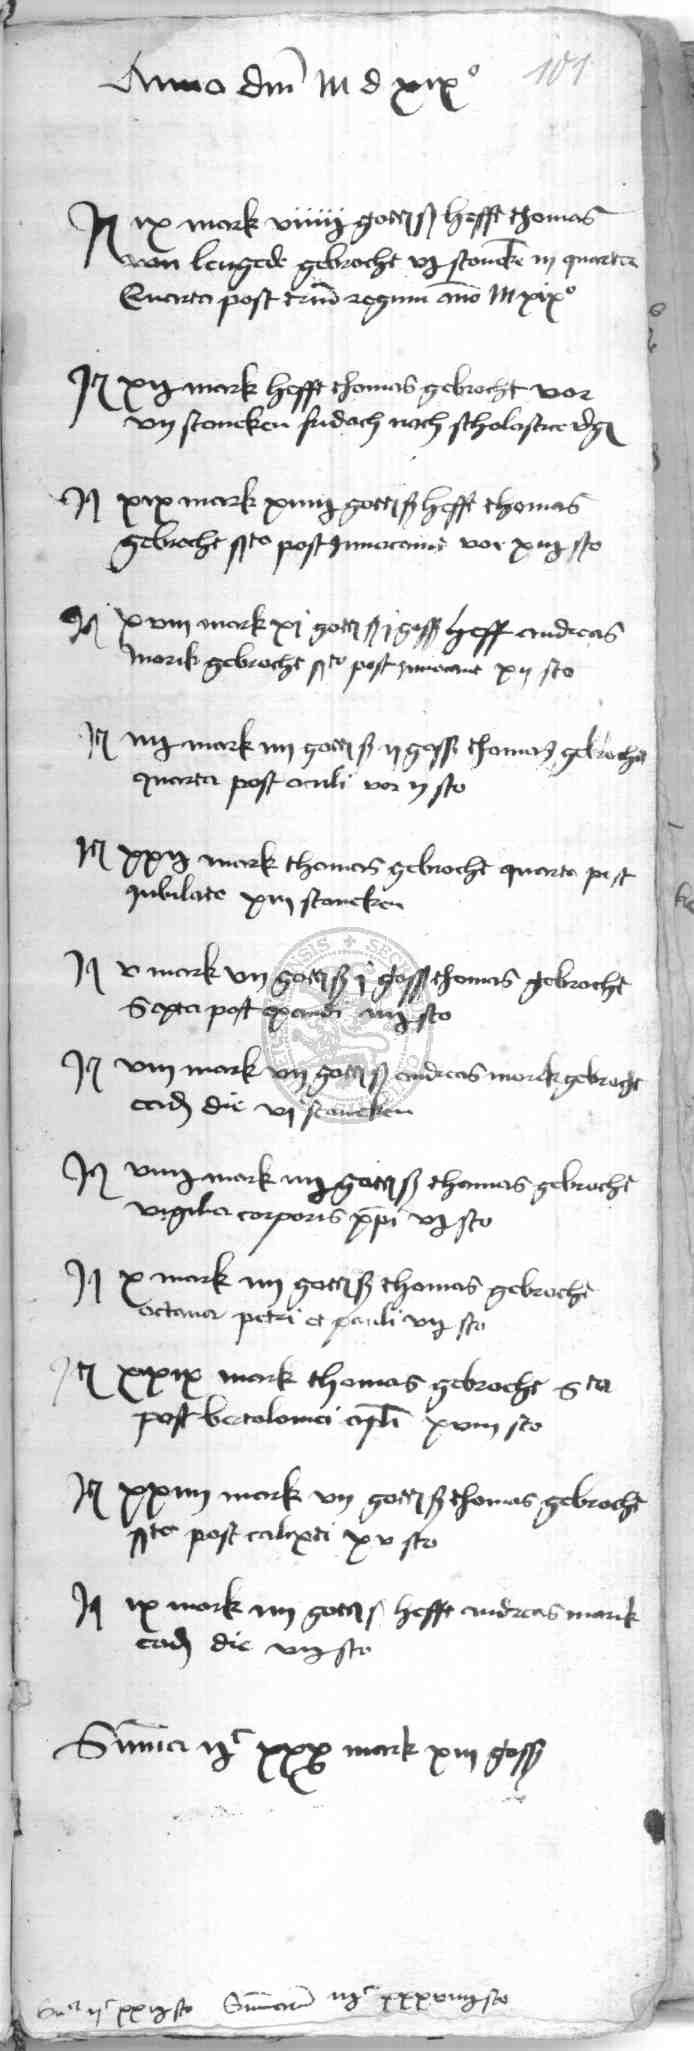 Anno dm̄ M d xix° 101
It ix mark viiij gott ß hefft thomas
von lengede gebrocht vj stoncke iij quarter
Quarta post trium regum año M xix°
It xij mark hefft thomas gebrocht vor
vij stoncken fridach nach scholastice
It xix mark xiiij gott ß hefft thomas
gebrocht post Innocauit vor xiij sto
It xviij mark xj gott ß j goss heff andreas
Morik gebrocht post Innocauit xij sto
It iiij mark iiij gott ß ij goss thomas gebrocht
quarta post oculi vor ij sto
It xxij mark thomas gebrocht quarta post
iubilate xiij stoncken
It v mark vij gott ß j goss thomas gebrocht
Sexta post exaudi iiij sto
It viij mark vij gott ß andreas morik gebrocht
eadem die vj stoncken
It viiij mark iiij gott ß thomas gebrocht
vigilia corporis xp̄i vj sto
It x mark iiij gott ß thomas gebrocht
octaua petri et pauli vij sto
It xxix mark thomas gebrocht Sta
post bertolomei apl̄i xviij sto
It xxiiij mark vij gott ß thomas gebrocht
post calixti xv sto
It ix mark iiij gott ß hefft andreas marik
eadem die vij sto
Sum̄a ijc xxx mark xiij goss
ijc xxij sto Summarum iijc xxxviiij sto